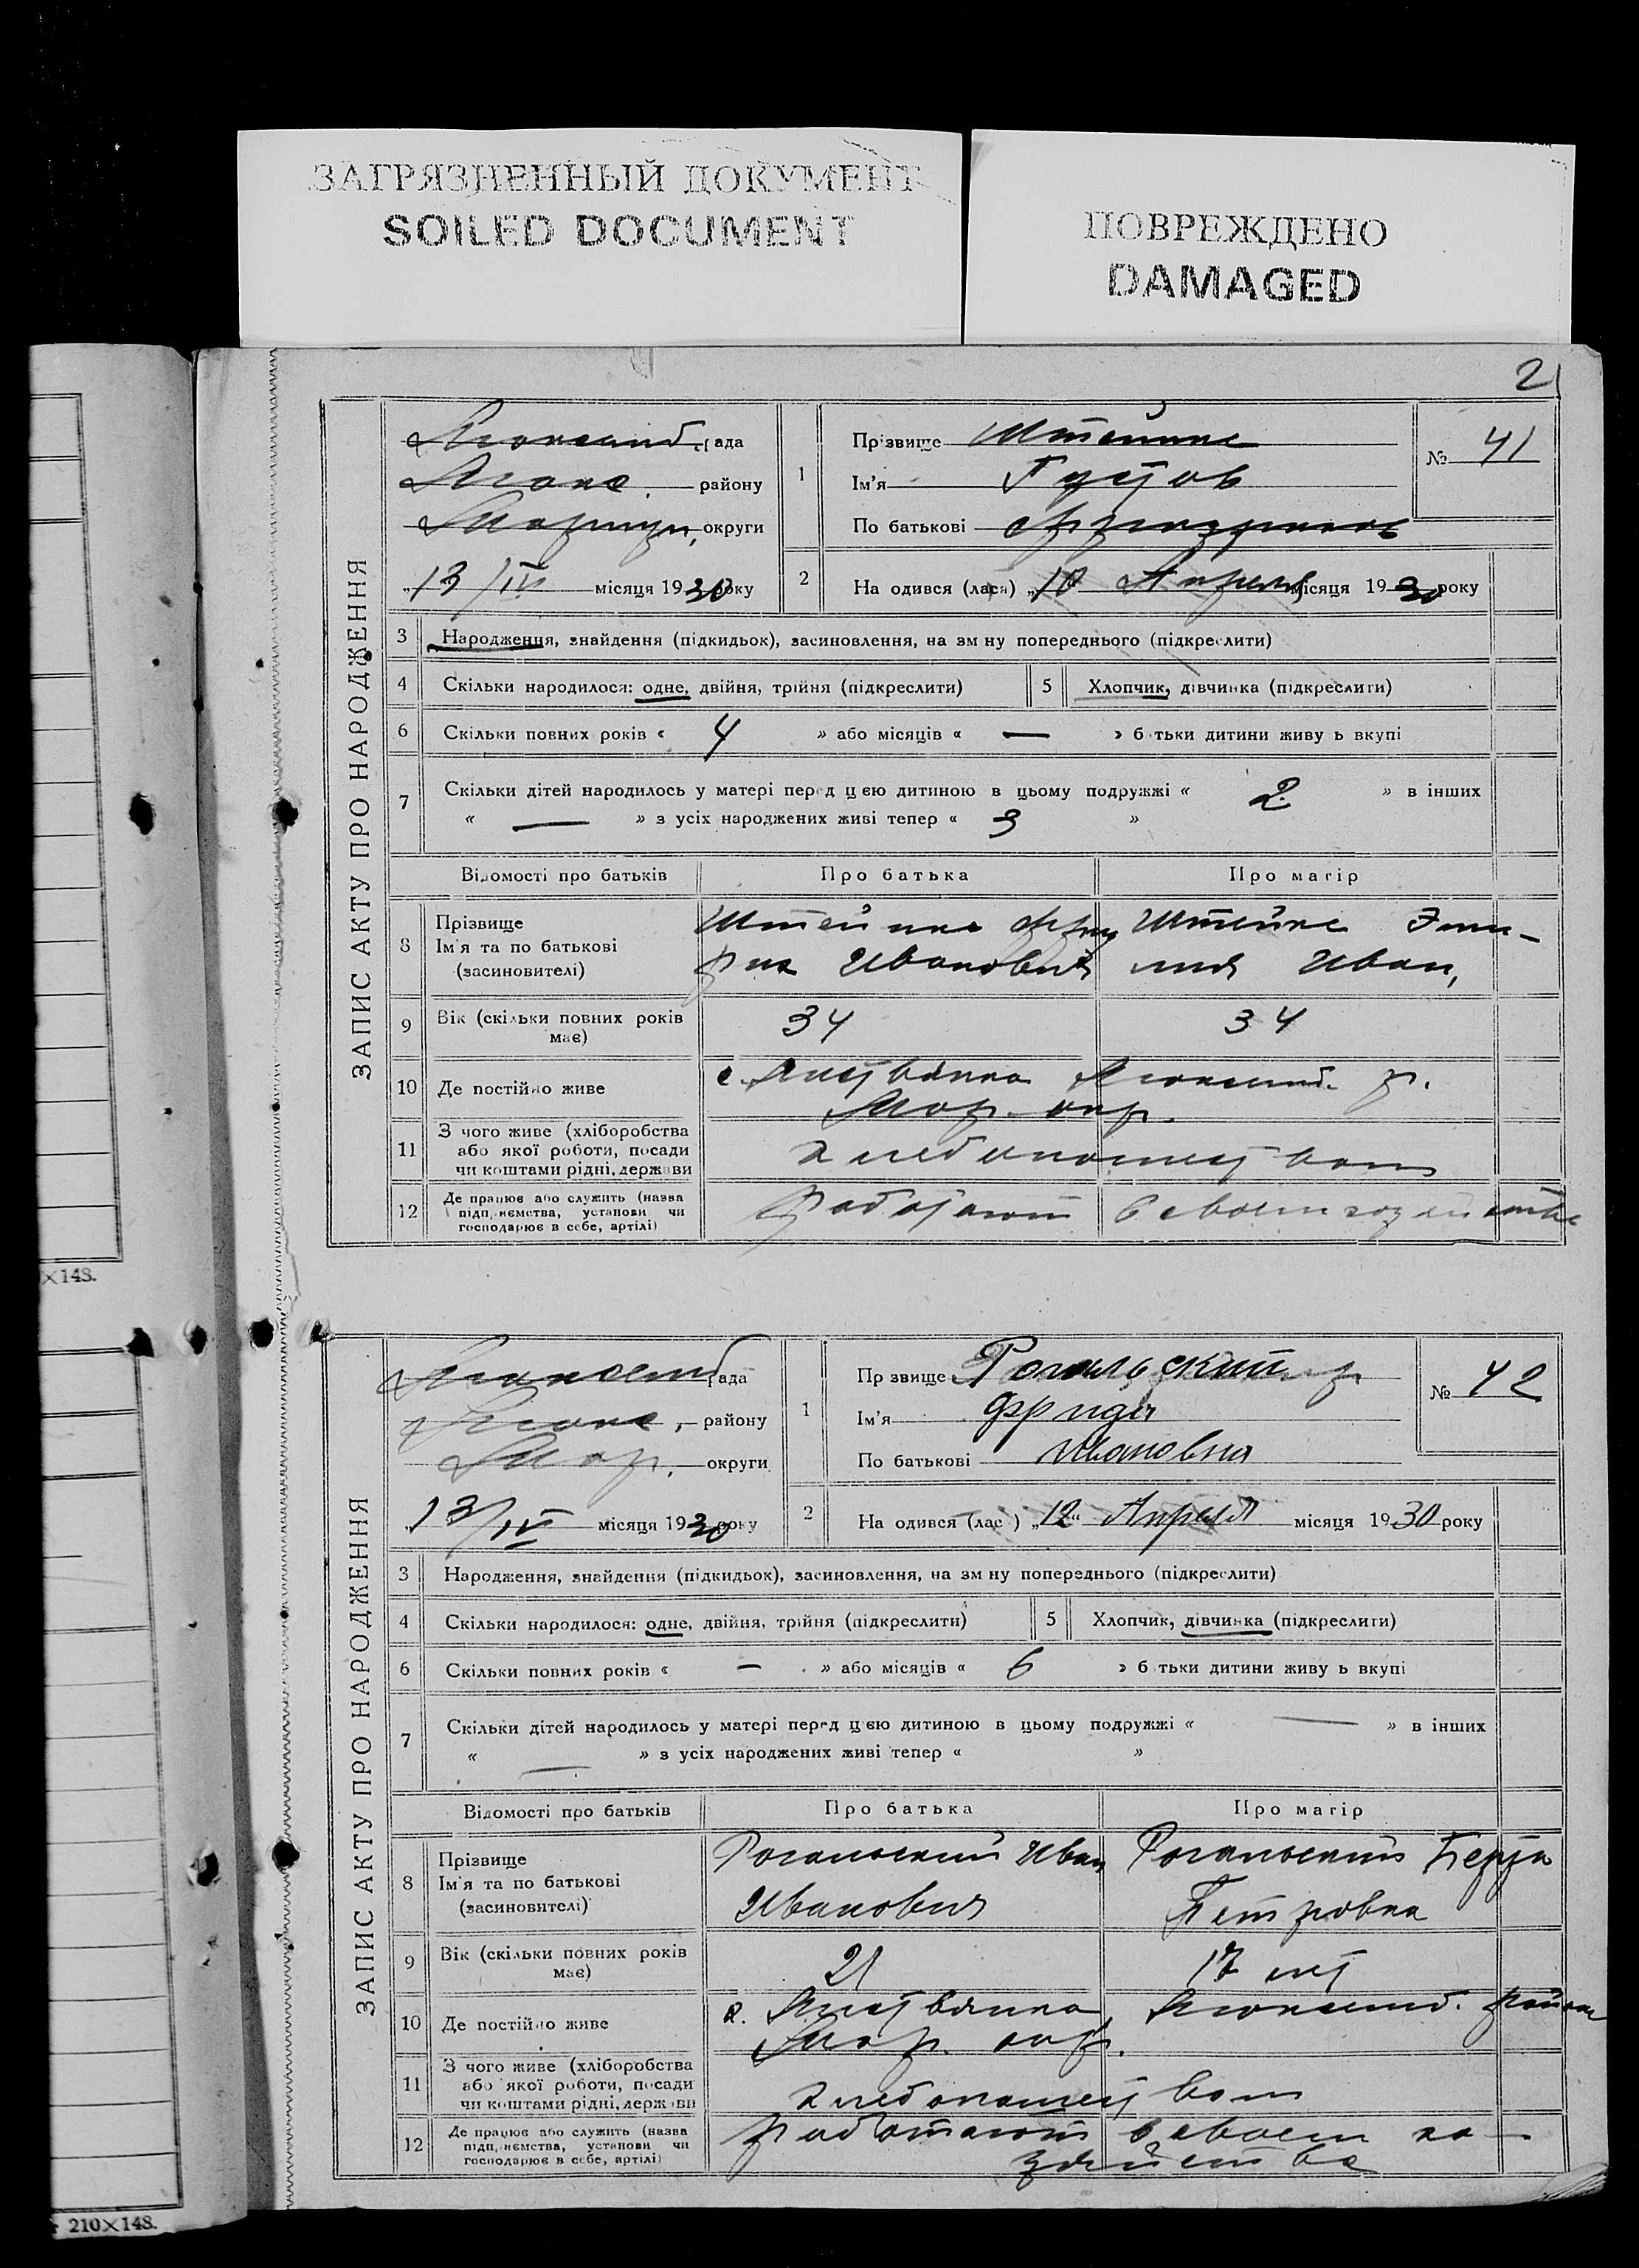 ЗАГРЯЗНЕННЫЙ ДОКУМЕНТ
SOILED DOCUMENT
ПОВРЕЖДЕНО
DAMAGED
21
ЗАПИС АКТУ ПРО НАРОДЖЕННЯ
ада
району
округи
13/IV місяця 1930 року
1
Пр звище Штейнке
Ім'я Густав
По батькові
№ 41
2 На одився (лася) „10 Апреля місяця 1930 року
3 Народження, знайдення (підкидьок), засиновлення, на зм ну попереднього (підкреслити)
4 Скільки народилося: одне, двійня, трійня (підкреслити) 5 Хлопчик, дівчинка (підкреслити)
6 Скільки повних років « 4 » або місяців « — » б тьки дитини живу ь вкупі
7 Скільки дітей народилось у матері перед цією дитиною в цьому подружжі « 2 » в інших
« — » з усіх народжених живі тепер « 3 »
Відомості про батьків Про батька Про матір
8 Прізвище
Ім'я та по батькові
(засиновителі)
Штейнке Фрид
рих Иванович
Штейнке Эми-
лия Иван,
9 Вік (скільки повних років
має)
34 34
10 Де постійно живе
Мар. окр.
11 З чого живе (хліборобства
або якої роботи, посади
чи коштами рідні, держави
хлебопашеством
12 Де працює або служить (назва
підп иємства, установи чи
господарює в себе, артілі)
работают в своем хозяйстве
×148.
ЗАПИС АКТУ ПРО НАРОДЖЕННЯ
ада
району
Мар. округи
13/IV місяця 1930 року
1
Пр звище
Ім'я Фрида
По батькові Ивановна
№ 42
2 На одився (лас ) „12“ Апреля місяця 1930 року
3 Народження, знайдення (підкидьок), засиновлення, на зм ну попереднього (підкреслити)
4 Скільки народилося: одне, двійня, трійня (підкреслити) 5 Хлопчик, дівчинка (підкреслити)
6 Скільки повних років « — » або місяців « 6 » б тьки дитини живу ь вкупі
7 Скільки дітей народилось у матері перед цією дитиною в цьому подружжі « — » в інших
« — » з усіх народжених живі тепер « »
Відомості про батьків Про батька Про матір
8 Прізвище
Ім'я та по батькові
(засиновителі)
Рогальский Иван
Иванович
Рогальский Берта
Петровна
9 Вік (скільки повних років
має)
21 17 лет
10 Де постійно живе
район
Мар. окр.
11 З чого живе (хліборобства
або якої роботи, посади
чи коштами рідні, держ ви
хлебопашеством
12 Де працює або служить (назва
підп иємства, установи чи
господарює в себе, артілі)
работают в своем хо-
зяйстве
210×148.